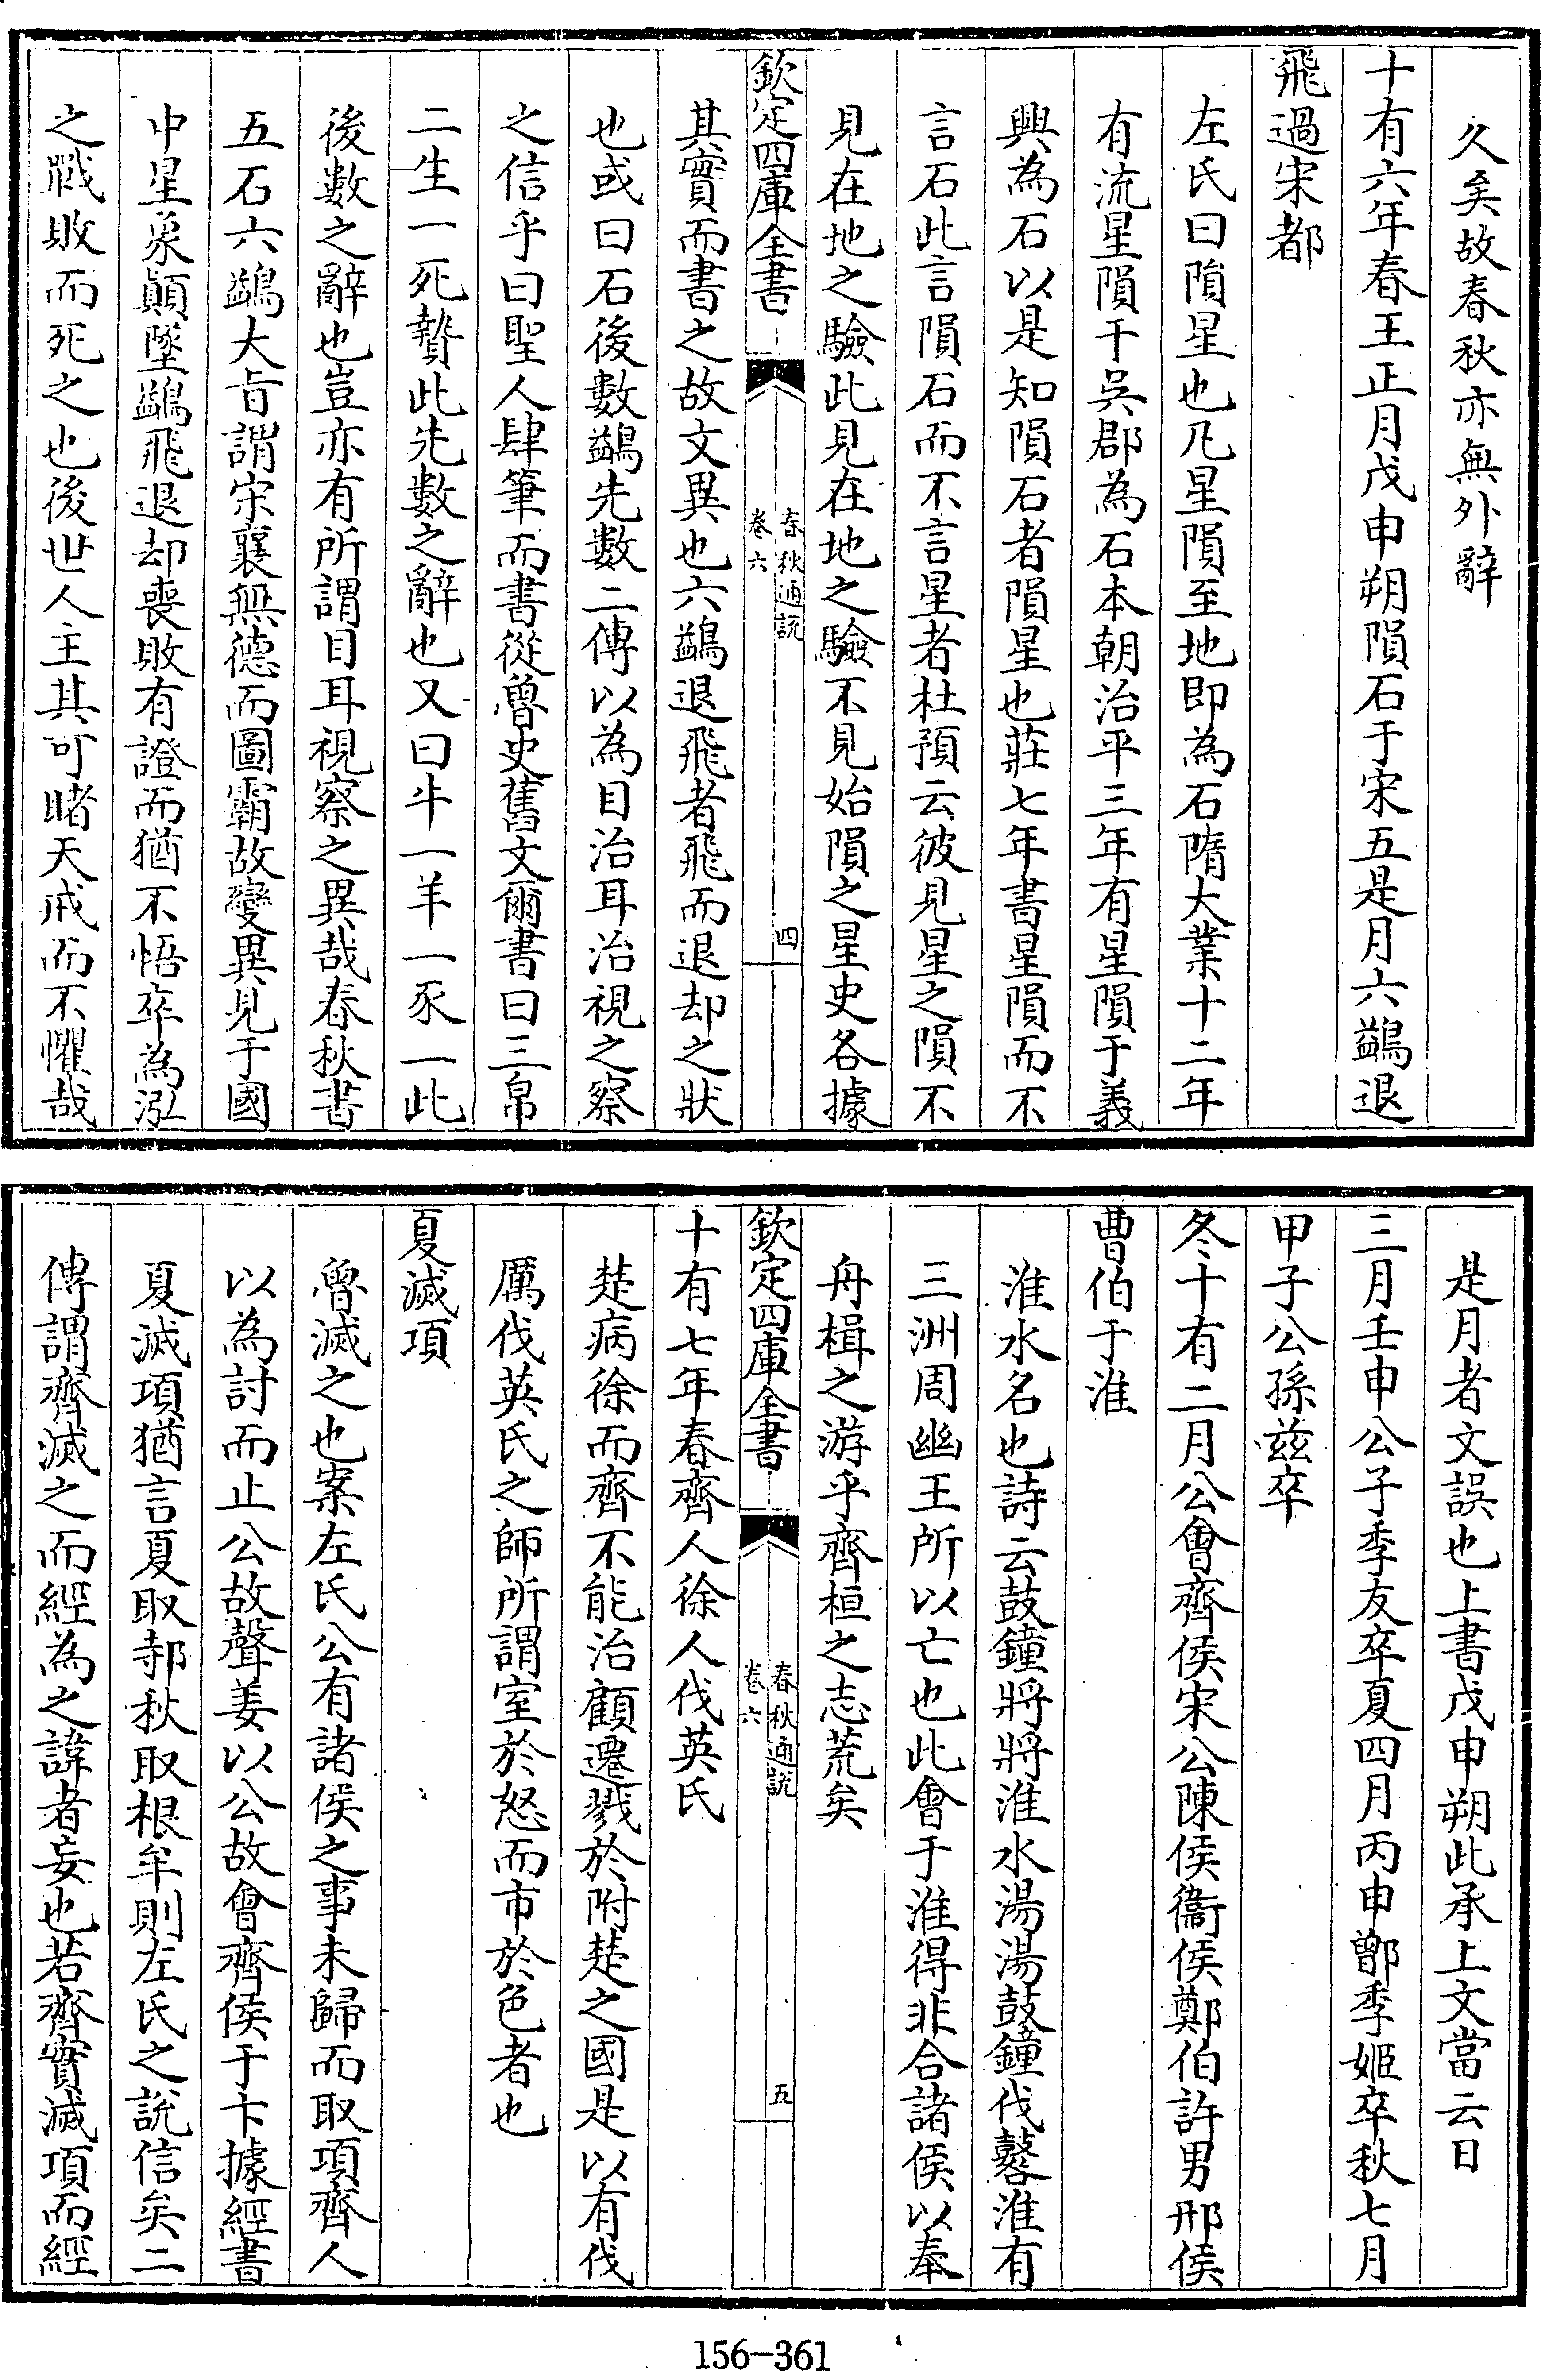 久矣故春秋亦無外辭
十有六年春王正月戊申朔隕石于宋五是月六鷁退
飛過宋都
左氏曰隕星也凡星隕至地即為石隋大業十二年
有流星隕于吳郡為石本朝治平三年有星隕于義
興為石以是知隕石者隕星也莊七年書星隕而不
言石此言隕石而不言星者杜預云彼見星之隕不
見在地之驗此見在地之驗不見始隕之星史各據
欽定四庫全書
春秋通說
卷六
四
其實而書之故文異也六鷁退飛者飛而退却之狀
也或曰石後數鷁先數二傳以為目治耳治視之察
之信乎曰聖人肆筆而書從魯史舊文爾書曰三帛
二生一死贄此先數之辭也又曰牛一羊一豕一此
後數之辭也豈亦有所謂目耳視察之異哉春秋書
五石六鷁大旨謂宋襄無德而圖霸故變異見于國
中星彖顛墜鷁飛退却喪敗有證而猶不悟卒為泓
之戰敗而死之也後世人主其可睹天戒而不懼哉
是月者文誤也上書戊申朔此承上文當云日
三月壬申公子季友卒夏四月丙申鄫季姬卒秋七月
甲子公孫兹卒
冬十有二月公會齊侯宋公陳侯衞侯鄭伯許男邢侯
曹伯于淮
淮水名也詩云鼓鐘將將淮水湯湯鼓鐘伐鼛淮有
三洲周幽王所以亡也此會于淮得非合諸侯以奉
舟楫之游乎齊桓之志荒矣
欽定四庫全書
春秋通說
卷六
五
十有七年春齊人徐人伐英氏
楚病徐而齊不能治顧遷戮於附楚之國是以有伐
厲伐英氏之師所謂室於怒而市於色者也
夏滅項
魯滅之也案左氏公有諸侯之事未歸而取項齊人
以為討而止公故聲姜以公故會齊侯于卞據經書
夏滅項猶言夏取邿秋取根牟則左氏之說信矣二
傳謂齊滅之而經為之諱者妄也若齊實滅項而經
156-361